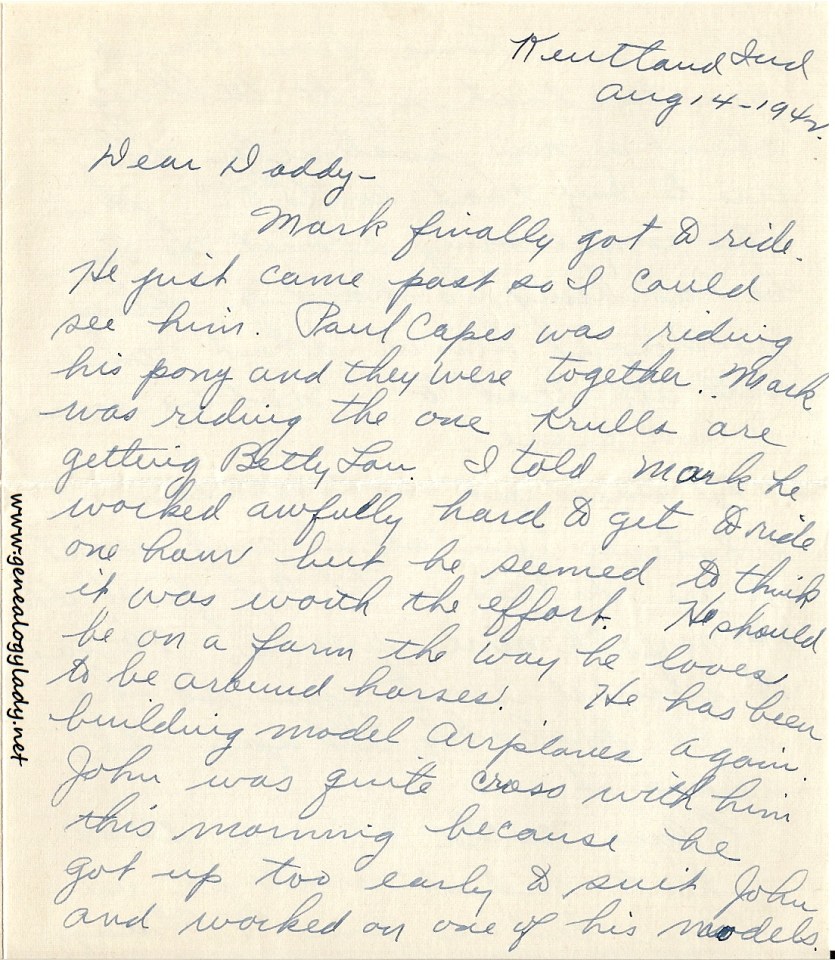 Kentland Ind
Aug 14-1942.
Dear Daddy-
Mark finally got to ride.
He just came past so I could
see him. Paul Capes was riding
his pony and they were together. Mark
was riding the one Krulls are
getting Betty Lou. I told Mark he
worked awfully hard to get to ride
one hour but he seemed to think
it was worth the effort. He should
be on a farm the way he loves
to be around horses. He has been
building model airplanes again.
John was quite cross with him
this morning because he
got up too early to suit John
and worked on one of his models.
www.genealogylady.net